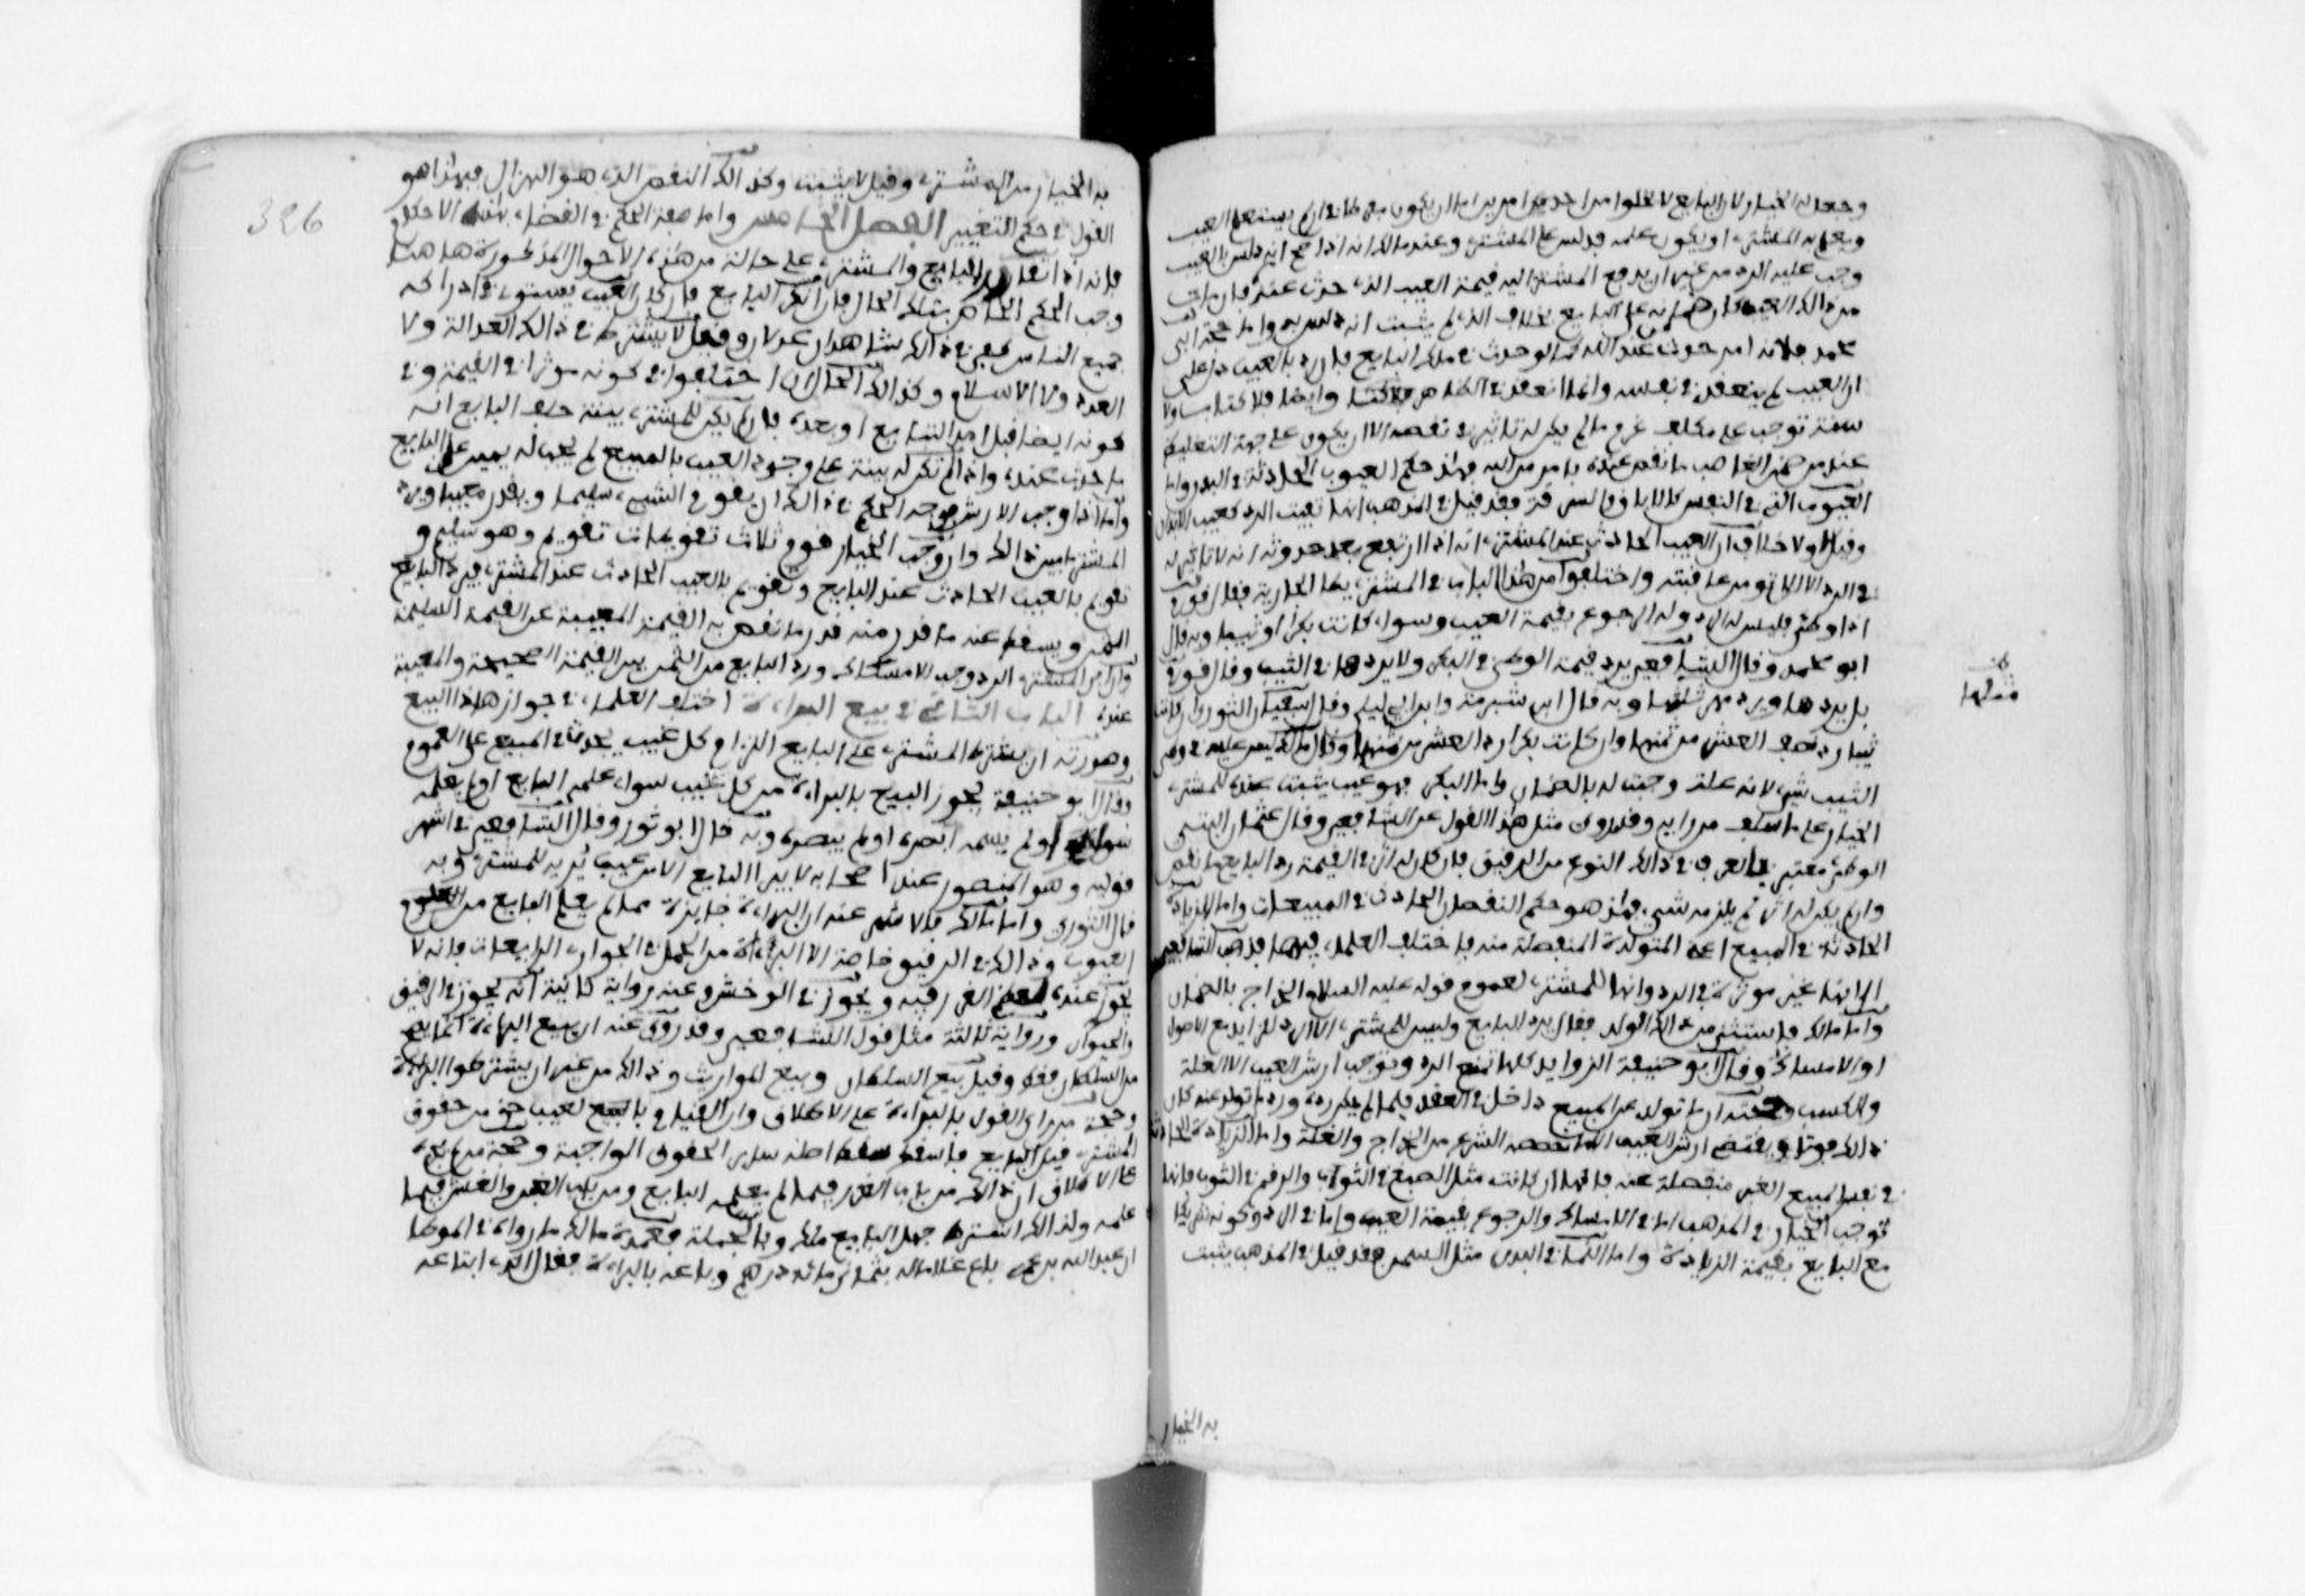 وجعل له الخيار لان البايع لا يخلوا من احد امرين اما ان يكون مفرطا في ان لم يستعلم العيب
ويعلم به المشتري او يكون علمه فدلس على المشتري وعند مالك انه اذا صح انه دلس بالعيب
وجب عليه الرد من غير ان يدفع المشتري اليه قيمة العيب الذي حدث عنده فان مات
من ذالك العيب كان ضمانه على البايع بخلاف الذي لم يثبت انه دلس به واما حجة ابي
محمد فلانه امر حدث من عند الله كما لو حدث في ملك البايع فان رد بالعيب دال على
ان العيب لم ينعقد في نفسه وانما انعقد في الظاهر فلا كتاب وايضا فلا كتاب ولا
سنة توجب على مكلف غرم ما لم يكن له تاثير في نقصه الا ان يكون على جهة التغليظ
عند من ضمن الغاصب ما نقص عنده بامر من الله فهذا حكم العيوب الحادثة في البدن واما
العيوب التي في النفس كالاباق والسرقة فقد قيل في المذهب انها تفيت الرد كعيب الابدان
وقيل لا ولا خلاف ان العيب الحادث عند المشتري انه اذا ارتفع بعد حدوثه انه لا تاثير له
في الرد الا ان لا تومن عاقبته واختلفوا من هذا الباب في المشتري يطا الجارية فقال قوم
اذا وطئ فليس له الرد وله الرجوع بقيمة العيب وسواء كانت بكرا او ثيبا وبه قال
ابو محمد وقال الشافعي يرد قيمة الوطئ في البكر ولا يردها في الثيب وقال قوم
بل يردها ويرد مهر مثلها وبه قال ابن شبرمة وابن ابي ليلى وقال سفيان الثوري ان كانت
ثيبا رد نصف العشر من ثمنها وان كانت بكرا رد العشر من ثمنها وقال مالك ليس عليه في وطئ
الثيب شيء لانه غلة وجبت له بالضمان واما البكر فهو عيب يثبت عنده للمشتري
الخيار على ما سلف من رايه وقد روي مثل هذا القول عن الشافعي وقال عثمان البتي
الوطئ معتبر في العرف في ذالك النوع من الرقيق فان كان له اثر في القيمة رد البايع ما نقص
وان لم يكن له اثر لم يلزمه شيء فهذا هو حكم النقصان الحادث في المبيعات واما الزيادة
الحادثة في المبيع اعني المتولدة المنفصلة منه فاختلف العلماء فيها فذهب الشافعي
الى انها غير موثرة في الرد وانها للمشتري لعموم قوله عليه السلام الخراج بالضمان
واما مالك فاستثنى من ذالك الولد فقال يرد للبايع وليس للمشتري الا الرد للزايد مع الاصول
او الامساك وقال ابو حنيفة الزوايد كلها تمنع الرد وتوجب ارش العيب الا الغلة
والكسب وحجته ان ما تولد عن المبيع داخل في العقد فلما لم يكن رده ورد ما تولد عنه كان
ذالك فوتا يقتضي ارش العيب الا ما نصصه الشرع من الخراج والغلة واما الزيادة الحادثة
في نفس المبيع الغير منفصلة عنه فانها ان كانت مثل الصبغ في الثوب والرقم في الثوب فانها
توجب الخيار في المذهب اما في الامساك والرجوع بقيمة العيب واما في الرد وكونه شريكا
مع البايع بقيمة الزيادة واما النما في البدن مثل السمن فقد قيل في المذهب يثبت
به الخيار
مثلها
326
به الخيار للمشتري وقيل لا يثبت وكذالك النقص الذي هو الهزال فهذا هو
القول في حكم التغيير الفصل الخامس واما صفة الحكم في القضاء بهذه الاحكام
فانه اذا تقار البايع والمشتري على حالة من هذه الاحوال المذكورة هاهنا
وجب الحكم الخاص بتلك الحال فان انكر البايع فان كان العيب يستوي في ادراكه
جميع الناس كفى في ذالك شاهدان عدلان وقيل لا يشترط في ذالك العدالة ولا
العدد ولا الاسلام وكذالك الحال ان اختلفوا في كونه موثرا في القيمة وفي
كونه ايضا قبل امد التبايع او بعده فان لم يكن للمشتري بينة حلف البايع انه
ما حدث عنده واذا لم تكن له بينة على وجود العيب بالمبيع لم يجب له يمين على البايع
واما اذا وجب الارش فوجه الحكم في ذالك ان يقوم الشيء سليما ويقوم معيبا ويرد
المشتري ما بين ذالك وان وجب الخيار قوم ثلاث تقويمات تقويم وهو سليم و
تقويم بالعيب الحادث عند البايع وتقويم بالعيب الحادث عند المشتري فيرد البايع
الثمن ويسقط عنه ما قدر منه قدر ما تنقص به القيمة المعيبة عن القيمة السليمة
وان ابى المشتري الرد وحب الامساك رد البايع من الثمن بين القيمة الصحيحة والمعيبة
عنده الباب الثاني في بيع البراءة اختلف العلماء في جواز هذا البيع
وصورته ان يشترط البايع على المشتري التزام كل عيب يجده في المبيع على العموم
وقال ابو حنيفة يجوز البيع بالبراءة من كل عيب سواء علمه البايع او لم يعلمه
سماه او لم يسمه ابصره او لم يبصره وبه قال ابو ثور وقال الشافعي في اشهر
قوليه وهو المنصور عند اصحابه لا يبرا البايع الا من عيب يريه للمشتري وبه
قال الثوري واما مالك فالاشهر عنه ان البراءة جايزة مما لم يعلم البايع من
العيوب وذالك في الرقيق خاصة الا البراءة من الحمل في الجوار الرايعات فانه لا
يجوز عنده لعظم الغرر فيه ويجوز في الوخش وعنه رواية ثانية انه يجوز في الرقيق
والحيوان ورواية ثالثة مثل قول الشافعي وقد روي عنه ان بيع البراءة انما يصح
من السلطان فقط وقيل بيع السلطان وبيع المواريث وذالك من غير ان يشترطوا البراءة
وحجة من راى القول بالبراءة على الاطلاق وان القيام بالعيب حق من حقوق
المشتري قبل البايع فاذا اسقطه سقط اصله ساير الحقوق الواجبة وحجة من لم يجزه
على الاطلاق ان ذالك من باب الغرر فيما لم يعلمه البايع ومن باب الغبن والغش فيما
علمه ولذالك اشترط جهل البايع مالك وبالجملة فعمدة مالك ما رواه في الموطا
ان عبد الله بن عمر باع غلاما له بثمان مائة درهم وباعه بالبراءة فقال الذي ابتاعه